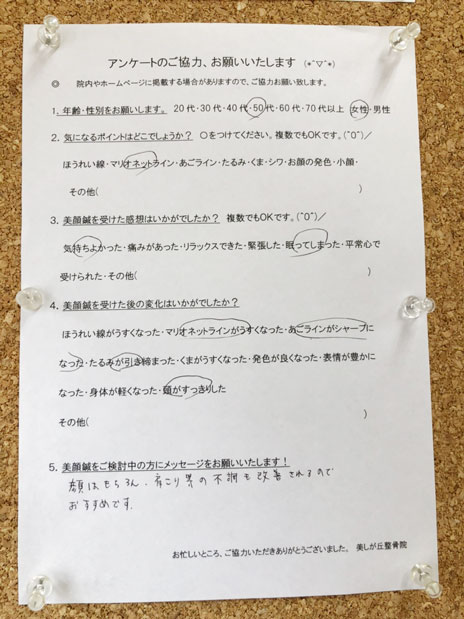 アンケートのご協力、お願いいたします (*^▽^*)
◎ 院内やホームページに掲載する場合がありますので、ご協力お願い致します。
1. 年齢・性別をお願いします。 20代・30代・40代・50代・60代・70代以上 女性・男性
2. 気になるポイントはどこでしょうか? ○をつけてください。複数でもOKです。(^0^)/
ほうれい線・マリオネットライン・あごライン・たるみ・くま・シワ・お顔の発色・小顔・
その他( )
3. 美顔鍼を受けた感想はいかがでしたか? 複数でもOKです。(^0^)/
気持ちよかった・痛みがあった・リラックスできた・緊張した・眠ってしまった・平常心で
受けられた・その他( )
4. 美顔鍼を受けた後の変化はいかがでしたか?
ほうれい線がうすくなった・マリオネットラインがうすくなった・あごラインがシャープに
なった・たるみが引き締まった・くまがうすくなった・発色が良くなった・表情が豊かに
なった・身体が軽くなった・頬がすっきりした
その他( )
5. 美顔鍼をご検討中の方にメッセージをお願いいたします!
顔はもちろん、肩こり等の不調も改善されるので
おすすめです。
お忙しいところ、ご協力いただきありがとうございました。 美しが丘整骨院